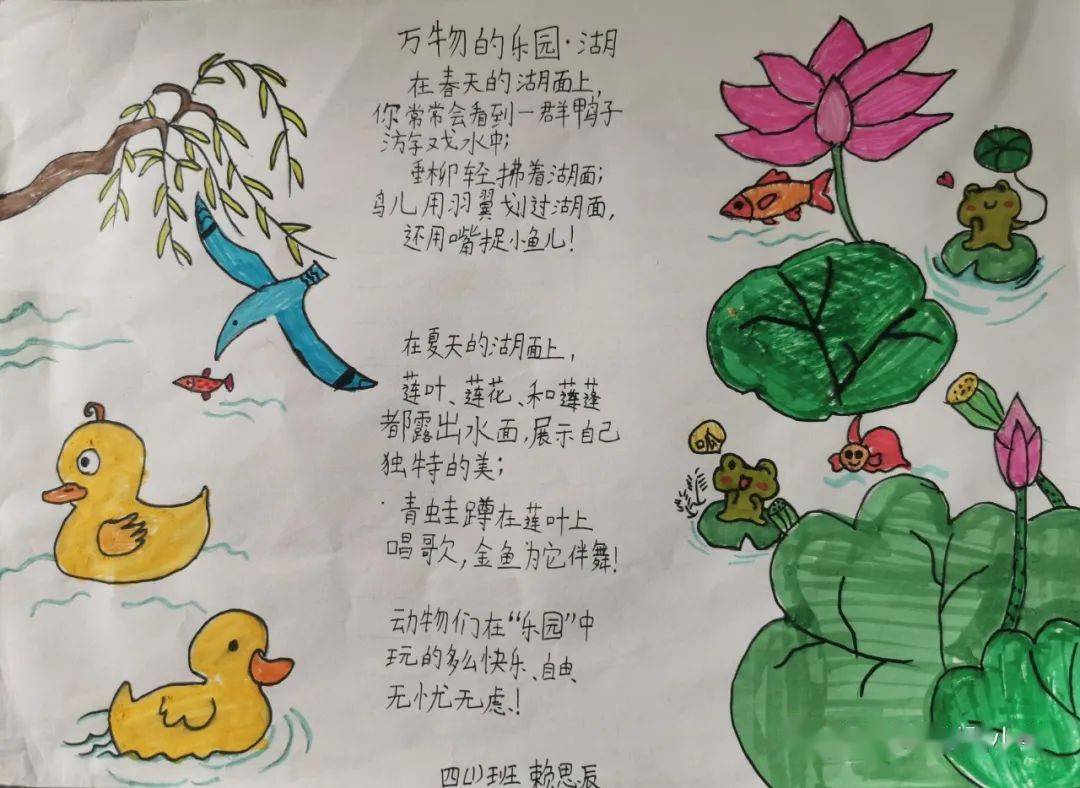 万物的乐园·湖
在春天的湖面上,
你常常会看到一群鸭子
游戏水中;
垂柳轻拂着湖面;
鸟儿用羽翼划过湖面,
还用嘴捉小鱼儿!
在夏天的湖面上,
莲叶、莲花、和莲蓬
都露出水面,展示自己
独特的美;
青蛙蹲在莲叶上
唱歌,金鱼为它伴舞!
呱
动物们在“乐园”中
玩的多么快乐、自由、
无忧无虑!
四(1)班 赖思辰